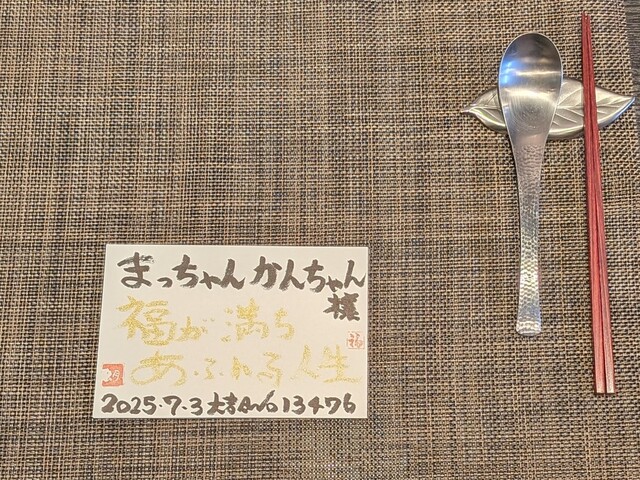 まっちゃん かんちゃん
様
福が満ち
福
あふれる人生
2025.7.3 大吉 No 13476